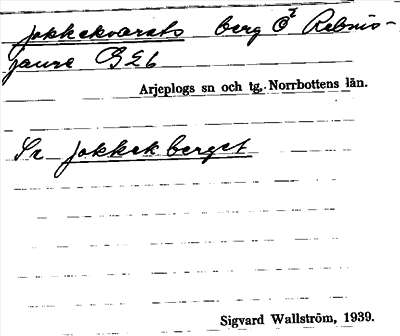 jokkekvarats berg Ö Rebnis-
jaure GE6
Arjeplogs sn och tg. Norrbottens län.
Sv jokkekberget
Sigvard Wallström, 1939.